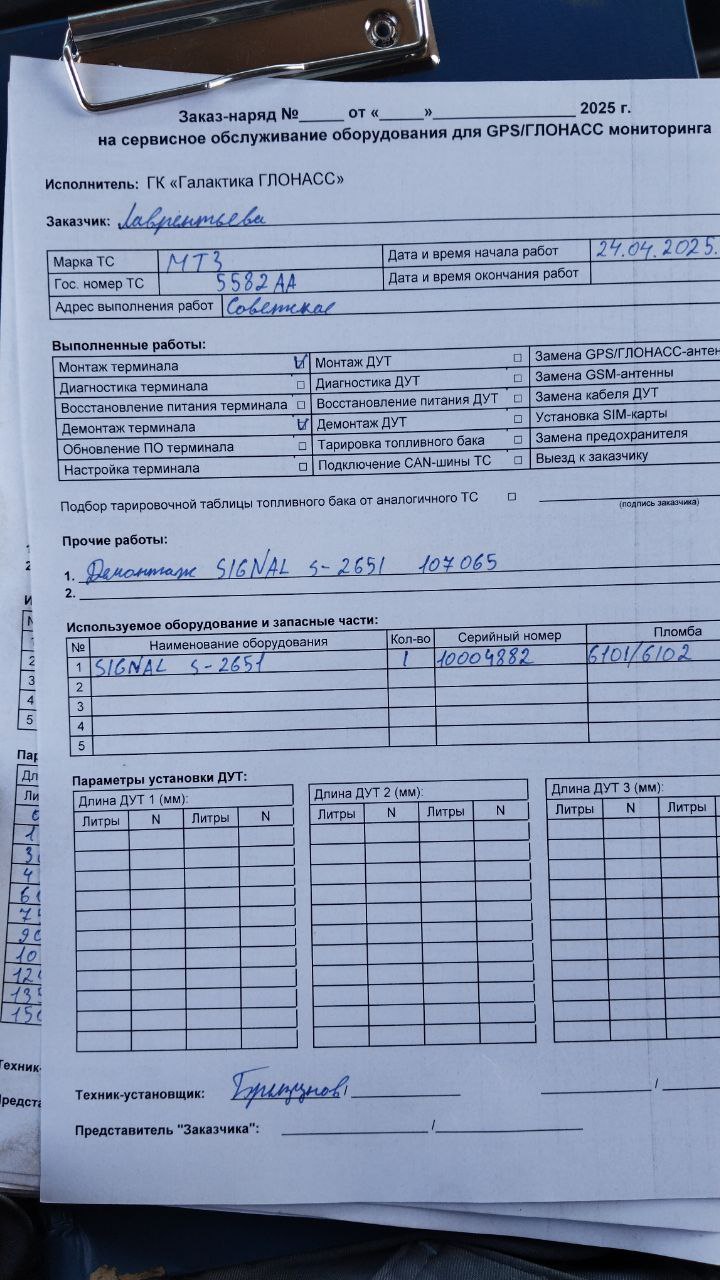 Заказ-наряд №_____ от «_____»________________ 2025 г.
на сервисное обслуживание оборудования для GPS/ГЛОНАСС мониторинга
Исполнитель: ГК «Галактика ГЛОНАСС»
Заказчик: Лаврентьева
Марка ТС МТЗ Дата и время начала работ 24.04.2025.
Гос. номер ТС 5582 АА Дата и время окончания работ
Адрес выполнения работ Советское
Выполненные работы:
Монтаж терминала ☑ Монтаж ДУТ □ Замена GPS/ГЛОНАСС-антен
Диагностика терминала □ Диагностика ДУТ □ Замена GSM-антенны
Восстановление питания терминала □ Восстановление питания ДУТ □ Замена кабеля ДУТ
Демонтаж терминала ☑ Демонтаж ДУТ □ Установка SIM-карты
Обновление ПО терминала □ Тарировка топливного бака □ Замена предохранителя
Настройка терминала □ Подключение CAN-шины ТС □ Выезд к заказчику
Подбор тарировочной таблицы топливного бака от аналогичного ТС □
(подпись заказчика)
Прочие работы:
1. Демонтаж SIGNAL S-2651 107065
2.
Используемое оборудование и запасные части:
№ Наименование оборудования Кол-во Серийный номер Пломба
1 SIGNAL S-2651 1 10004882 6101/6102
2
3
4
5
Параметры установки ДУТ:
Длина ДУТ 1 (мм): Длина ДУТ 2 (мм): Длина ДУТ 3 (мм):
Литры N Литры N Литры N Литры N Литры N Литры
Техник-установщик: /
Представитель "Заказчика": /